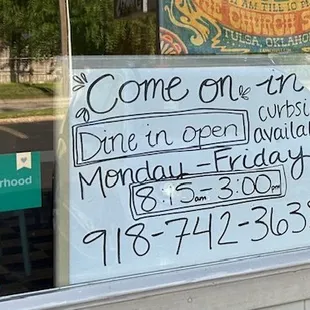 AM TILL 10 P
THE CHURCH S
TULSA, OKLAHOM
Come on in
curbsi
Dine in open
availal
Monday - Friday
8:15am - 3:00pm
918-742-363
rhood